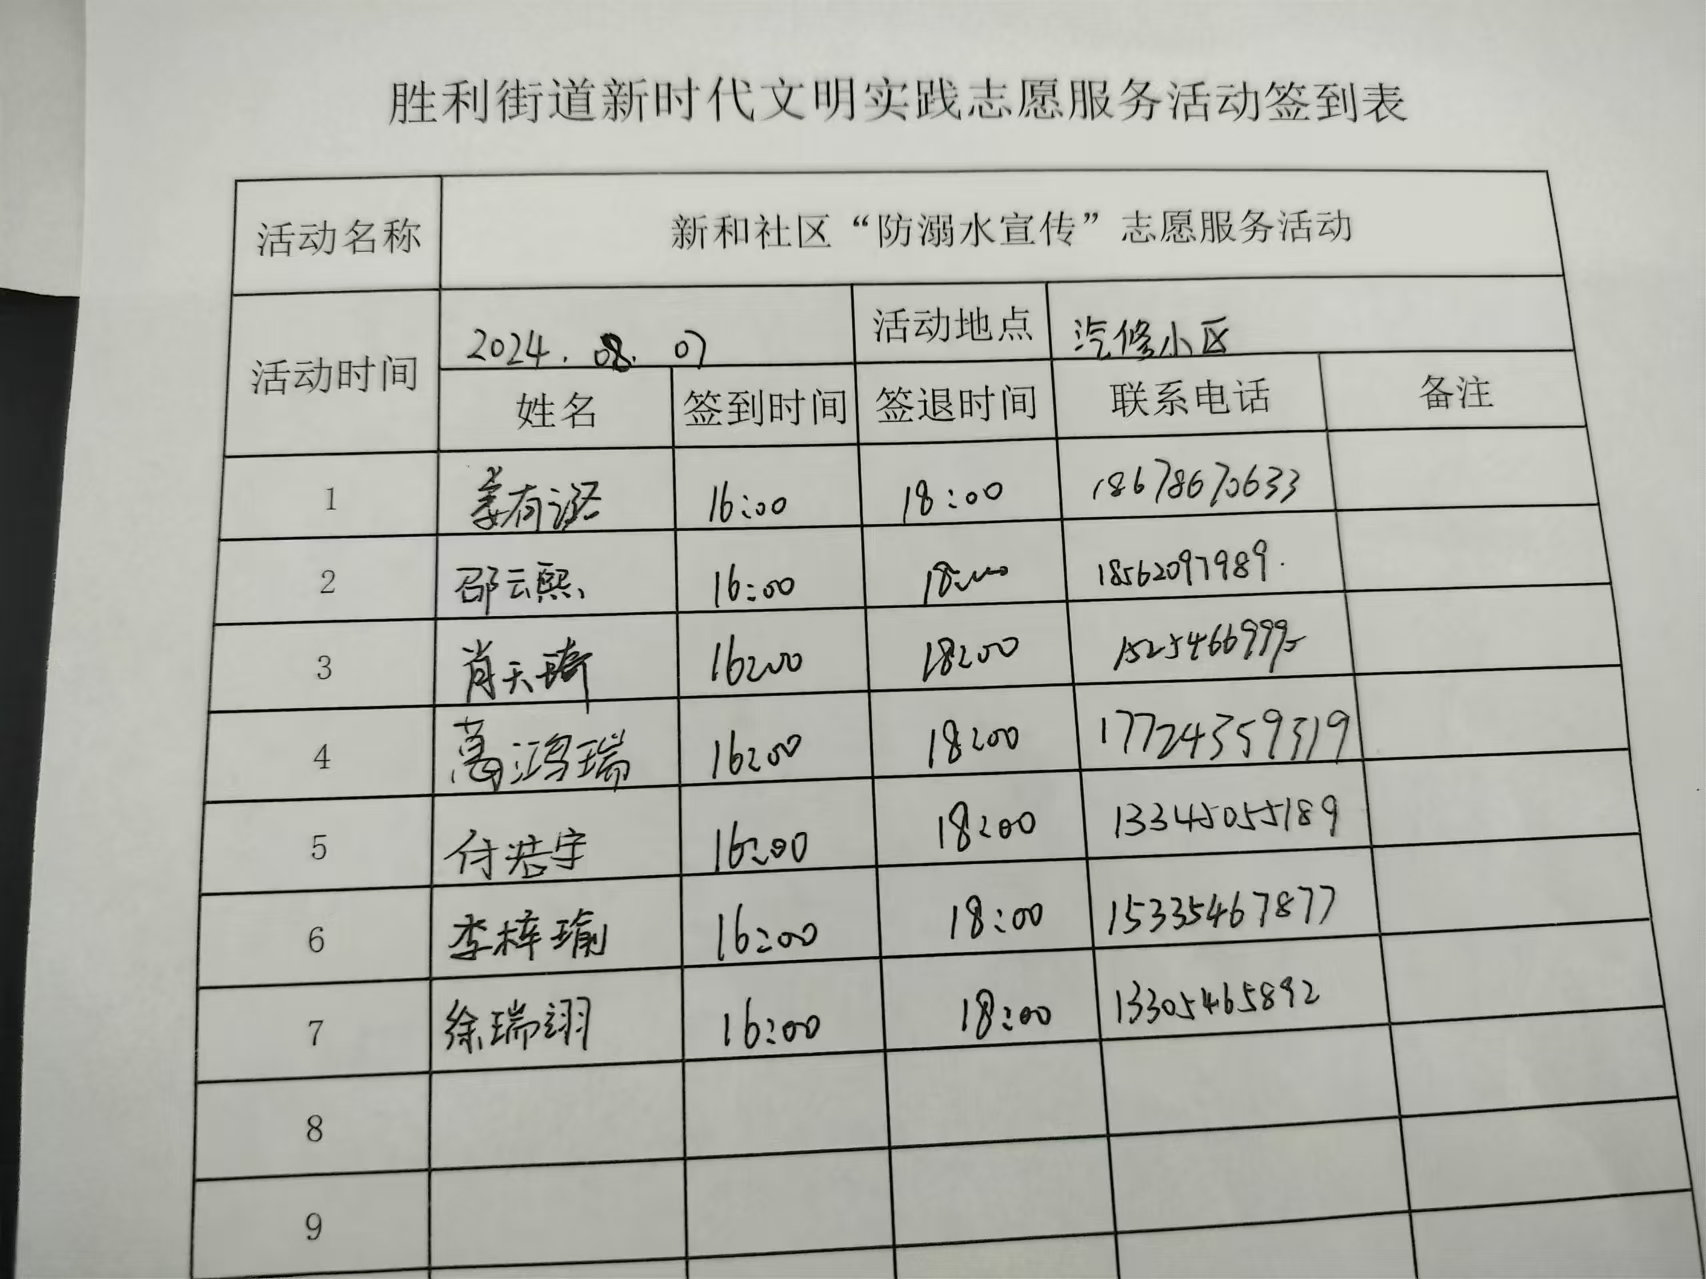 胜利街道新时代文明实践志愿服务活动签到表
活动名称 新和社区“防溺水宣传”志愿服务活动
活动时间 2024.08.07 活动地点 汽修小区
姓名 签到时间 签退时间 联系电话 备注
1 16:00 18:00 18678670633
2 邵云熙 16:00 18:00 18562097989.
3 肖天琦 16:00 18:00 15254669995
4 万鸿瑞 16:00 18:00 17724359319
5 付浩宇 16:00 18:00 13345055189
6 李梓瑜 16:00 18:00 15335467877
7 徐瑞翊 16:00 18:00 13305465892
8
9